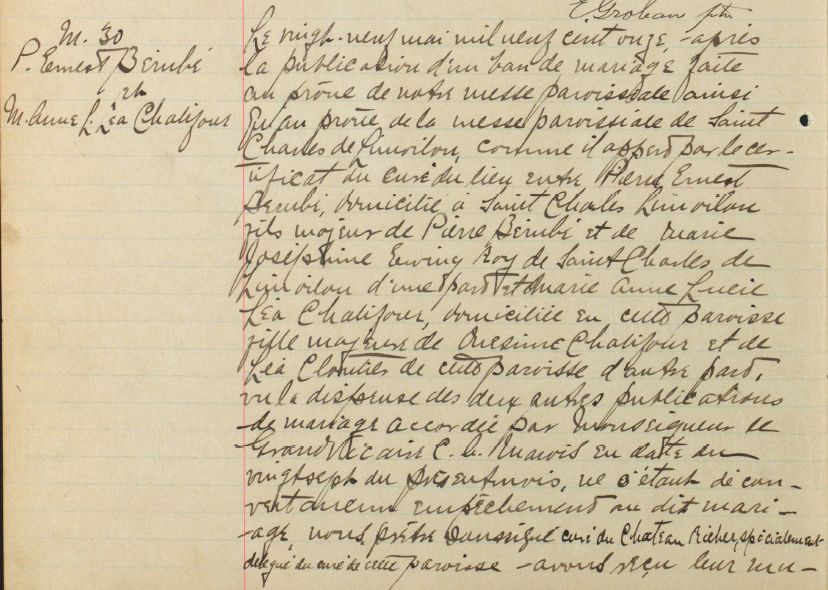 E. Groleau ptre
M. 30
P. Ernest Bérubé
et
M. Anne L. Léa Chalifour
Le vingt-neuf mai mil neuf cent onze, après
la publication d'un ban de mariage faite
au prône de notre messe paroissiale ainsi
qu'au prône de la messe paroissiale de Saint
Charles de Limoilou, comme il appert par le cer-
tificat du curé du lieu entre Pierre Ernest
Bérubé, domicilié à Saint Charles Limoilou
fils majeur de Pierre Bérubé et de Marie
Joséphine Ewing Roy de Saint Charles de
Limoilou d'une part et Marie Anne Lucie
Léa Chalifour, domiciliée en cette paroisse
fille majeure de Onésime Chalifour et de
Léa Cloutier de cette paroisse d'autre part,
vu la dispense des deux autres publications
de mariage accordée par Monseigneur le
Grand Vicaire C. A. Marois en date du
vingt sept du présent mois, ne s'étant décou-
vert aucun empêchement au dit mari-
age, nous, prêtre soussigné curé du Château Richer, spécialement
délégué du curé de cette paroisse - avons reçu leur mu-